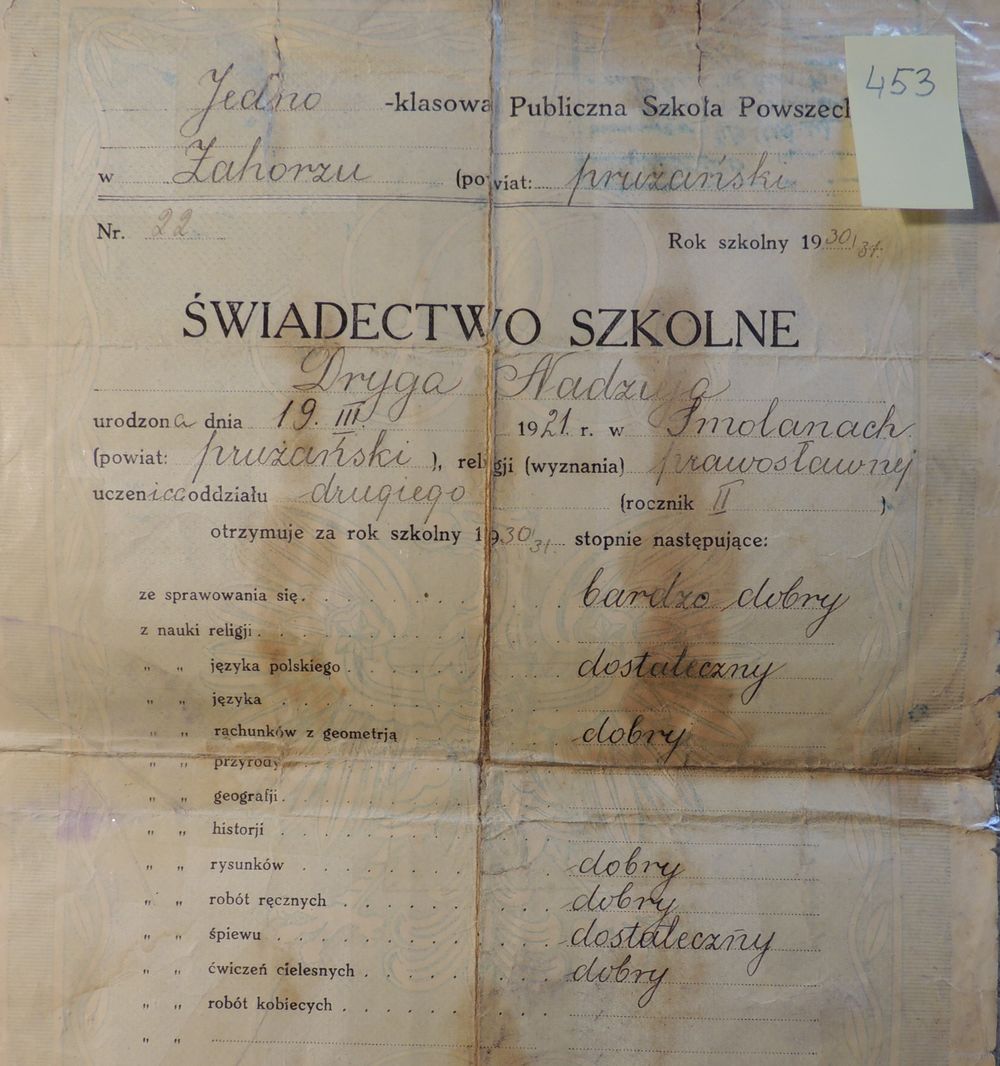 453
Jedno -klasowa Publiczna Szkoła Powszech
w Zahorzu (powiat: prużański
Nr. 22 Rok szkolny 1930/31.
ŚWIADECTWO SZKOLNE
Dryga Nadzieja
urodzona dnia 19. III. 1921. r. w Smolanach
(powiat: prużański ), religji (wyznania) prawosławnej
uczenica oddziału drugiego (rocznik II )
otrzymuje za rok szkolny 1930/31. stopnie następujące:
ze sprawowania się . . . . . . . . bardzo dobry
z nauki religji . . . . . . . .
„ „ języka polskiego . . . . . . . . dostateczny
„ „ języka . . . . . . . .
„ „ rachunków z geometrją . . . . dobry
„ „ przyrody . . . . . . . .
„ „ geografji . . . . . . . .
„ „ historji . . . . . . . .
„ „ rysunków . . . . . . . . dobry
„ „ robót ręcznych . . . . . . . . dobry
„ „ śpiewu . . . . . . . . dostateczny
„ „ ćwiczeń cielesnych . . . . . . . . dobry
„ „ robót kobiecych . . . . . . . .
„ „